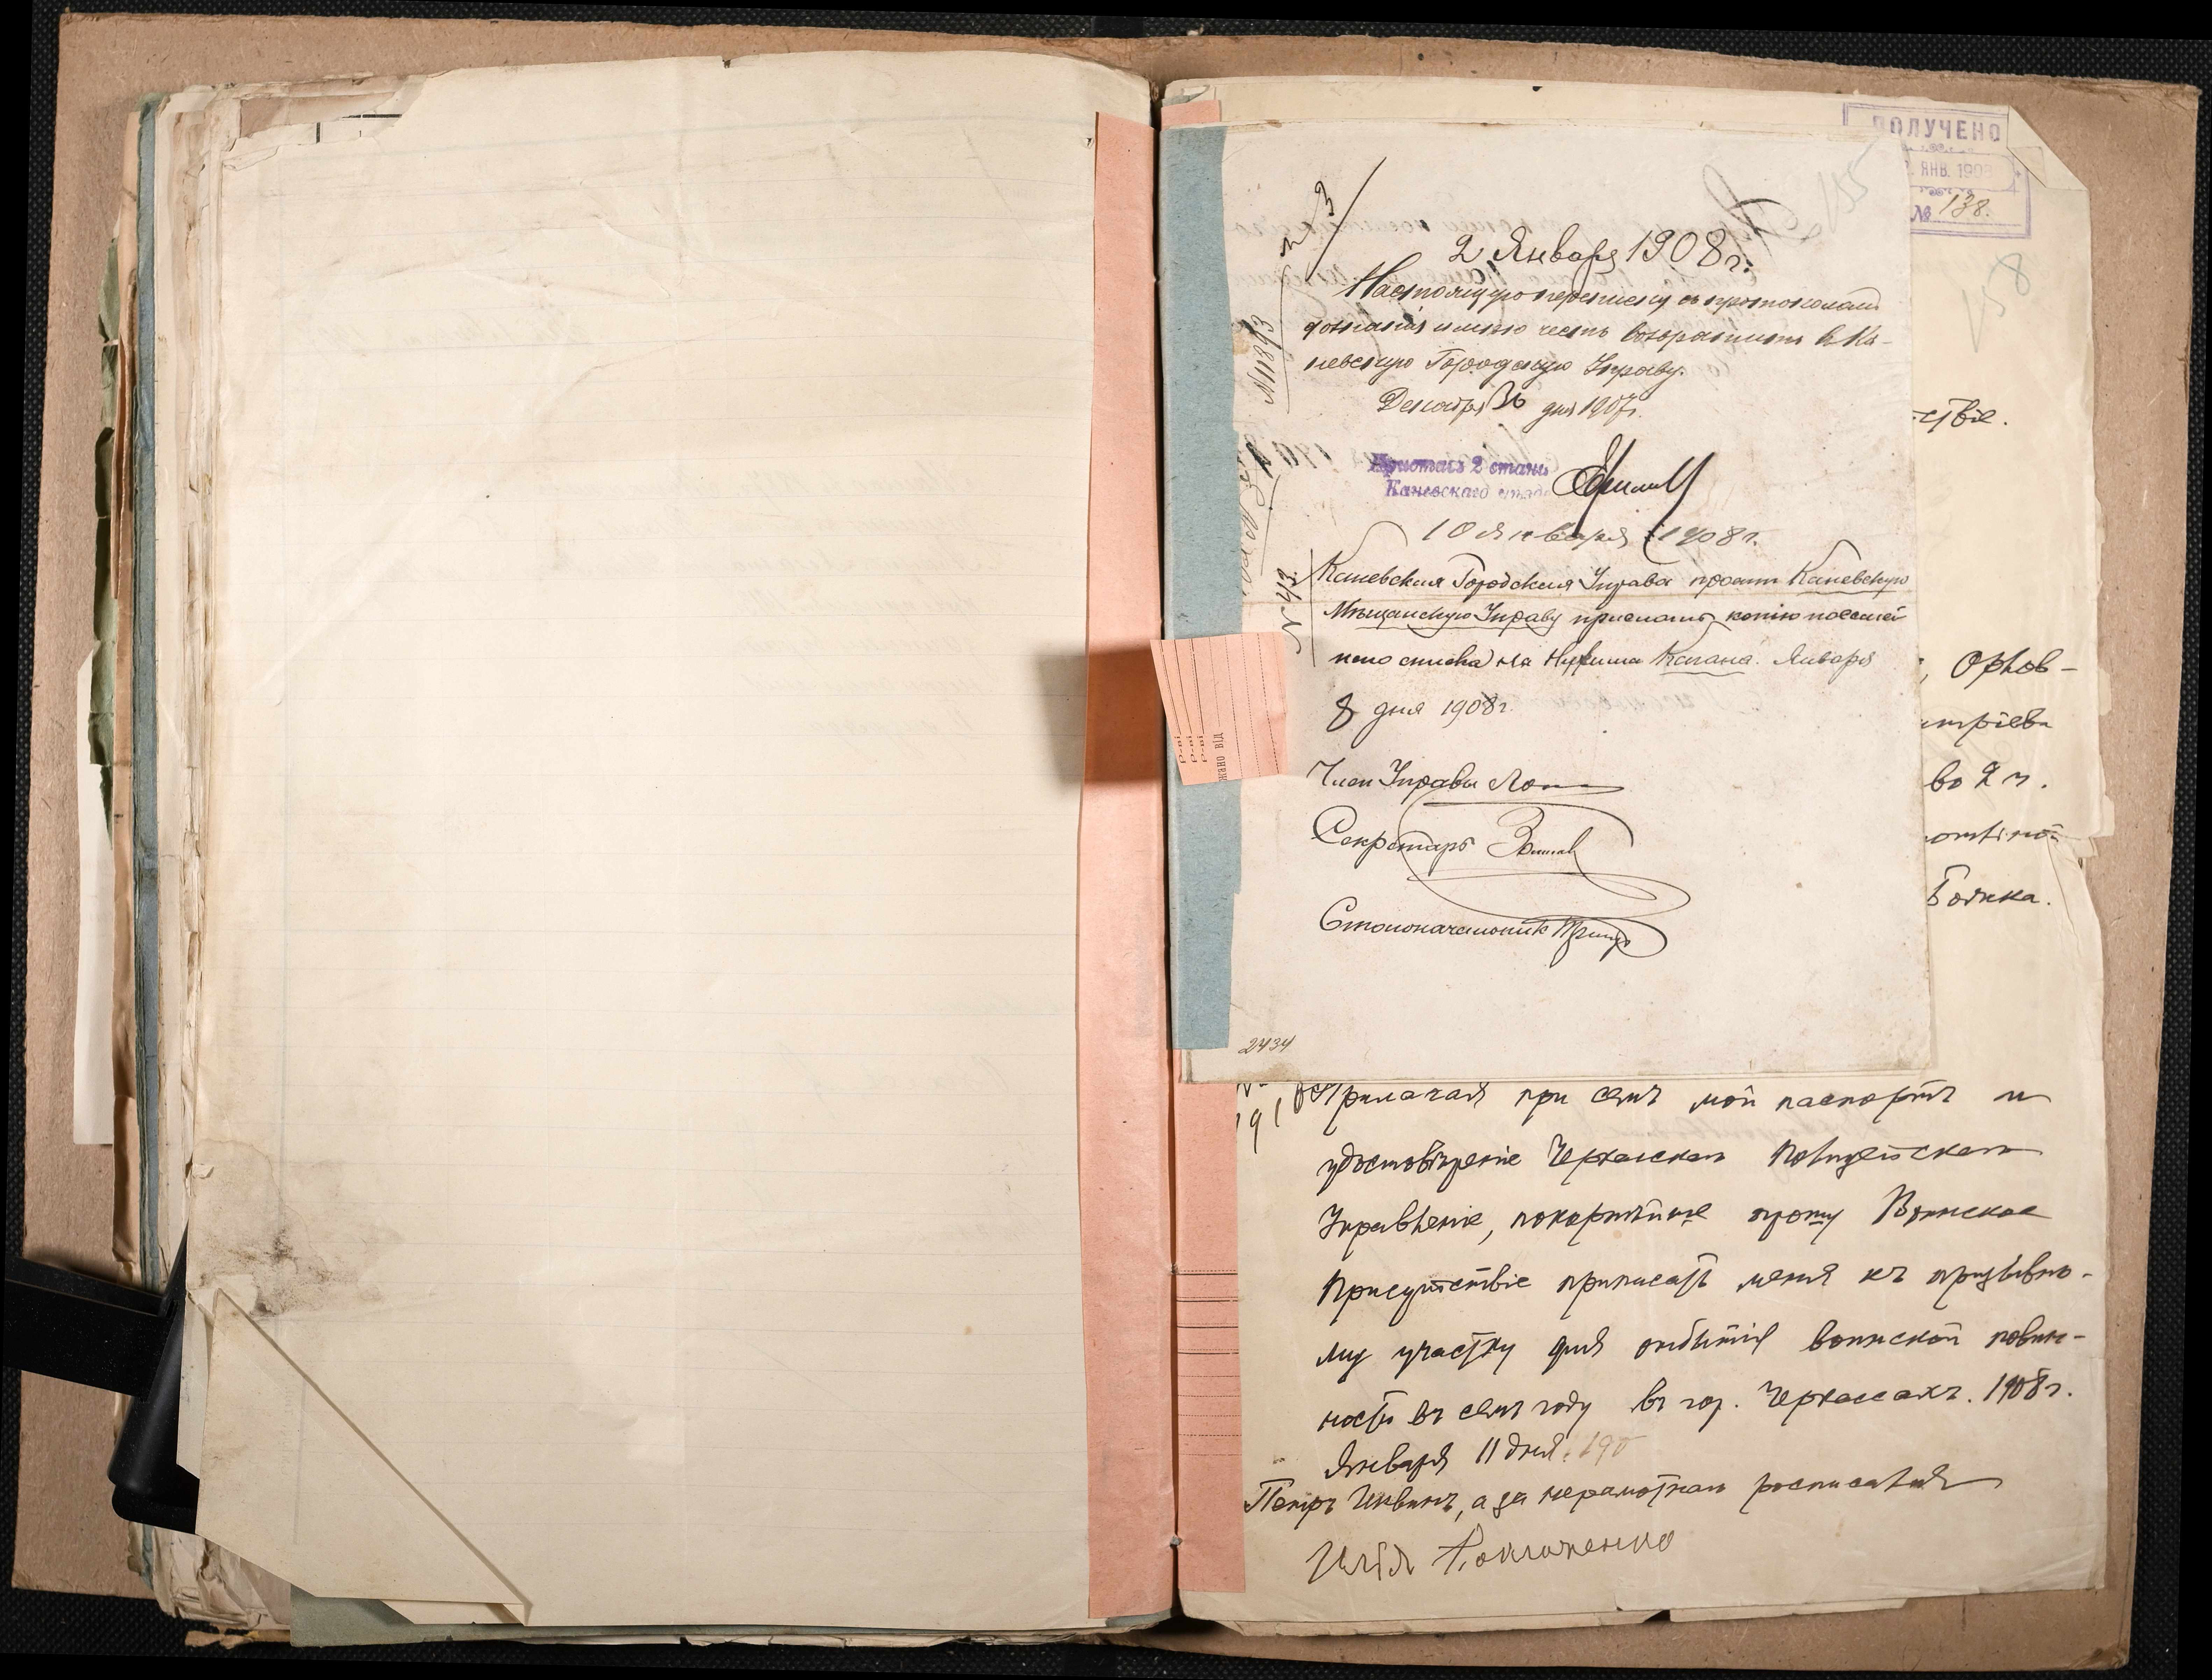 ПОЛУЧЕНО
ЯНВ. 190
№ 138.
155
158
№ 3
2 Января 1908 г.
№ 11893
Настоящую переписку съ протоколами
дознанія имѣю честь возвратить в Ка-
невскую Городскую Управу.
Декабря 30 дня 1907 г.
Приставъ 2 стана
Каневскаго уѣзда
10 января 1908 г.
№ 43.
Каневская Городская Управа просит Каневскую
Мѣщанскую Управу прислать копію посемей
наго списка на Кагана. Января
8 дня 1908 г.
Член Управы
Секретарь
Столоначальник
2434
ствіе.
, Орлов-
митріева
во 2 м.
Боянка.
Прилагая при семъ мой паспортъ и
удостовѣреніе Черкасскаго Полицейскаго
Управленіе, покорнѣйше прошу Воинское
Присутствіе приписать меня къ призывно-
му участку для отбытія воинской повин-
ности въ семъ году въ гор. Черкассахъ. 1908 г.
Января 11 дня. 190
Петръ, а за неграмотнаго росписался
Илія